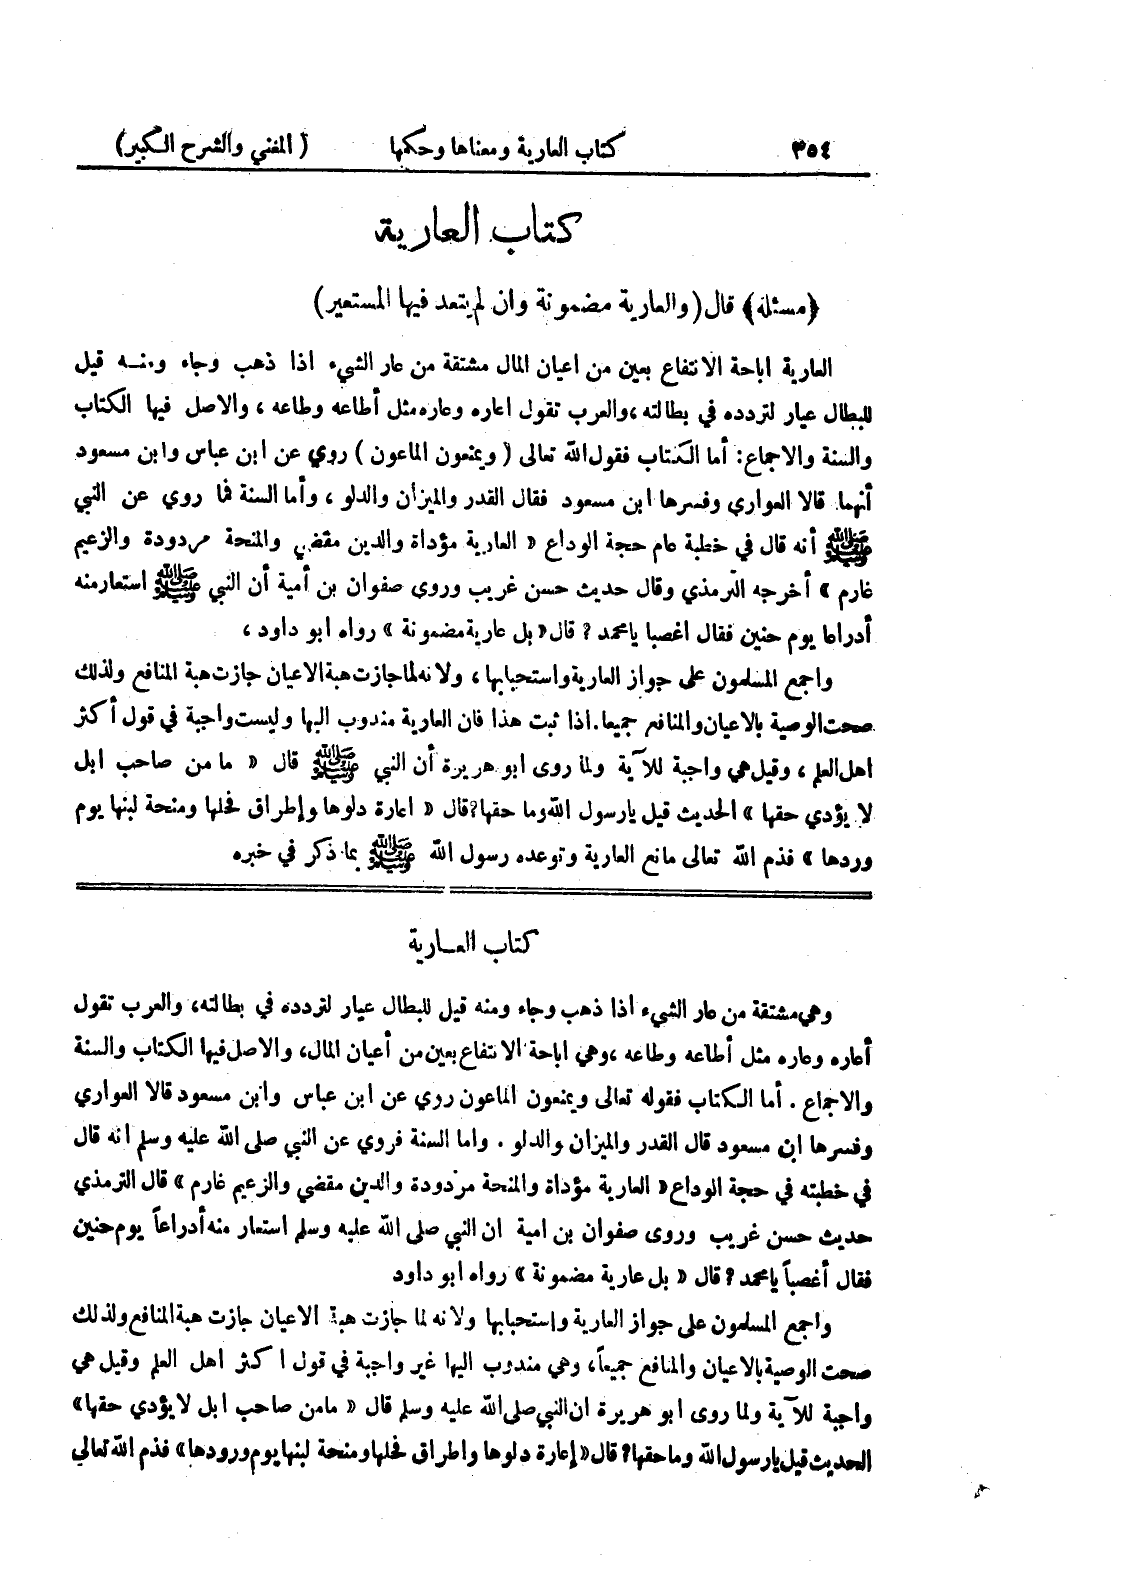 ٣٥٤ كتاب العارية ومعناها وحكمها ( المغني والشرح الكبير)
كتاب العارية
﴿مسئلة﴾ قال (والعارية مضمونة وان لم يتعد فيها المستعير)
العارية اباحة الانتفاع بعين من اعيان المال مشتقة من عار الشيء اذا ذهب وجاء ومنه قيل
للبطال عيار لتردده في بطالته ، والعرب تقول اعاره وعاره مثل أطاعه وطاعه ، والاصل فيها الكتاب
والسنة والاجماع : أما الكتاب فقول الله تعالى ( ويمنعون الماعون ) روي عن ابن عباس وابن مسعود
أنهما قالا العواري وفسرها ابن مسعود فقال القدر والميزان والدلو ، وأما السنة فما روي عن النبي
ﷺ أنه قال في خطبة عام حجة الوداع « العارية مؤداة والدين مقضي والمنحة مردودة والزعيم
غارم » أخرجه الترمذي وقال حديث حسن غريب وروى صفوان بن أمية أن النبي ﷺ استعار منه
أدراعا يوم حنين فقال اغصبا يامحمد ؟ قال « بل عارية مضمونة » رواه ابو داود ،
واجمع المسلمون على جواز العارية واستحبابها ، ولانه لما جازت هبة الاعيان جازت هبة المنافع ولذلك
صحت الوصية بالاعيان والمنافع جميعا . اذا ثبت هذا فان العارية مندوب اليها وليست واجبة في قول أكثر
اهل العلم ، وقيل هي واجبة للآية ولما روى ابو هريرة أن النبي ﷺ قال « ما من صاحب ابل
لا يؤدي حقها » الحديث قيل يارسول الله وما حقها؟ قال « اعارة دلوها وإطراق فحلها ومنحة لبنها يوم
وردها » فذم الله تعالى مانع العارية وتوعده رسول الله ﷺ بما ذكر في خبره
كتاب العـارية
وهي مشتقة من عار الشيء اذا ذهب وجاء ومنه قيل للبطال عيار لتردده في بطالته، والعرب تقول
أعاره وعاره مثل أطاعه وطاعه ، وهي اباحة الانتفاع بعين من أعيان المال، والاصل فيها الكتاب والسنة
والاجماع . أما الكتاب فقوله تعالى ويمنعون الماعون روي عن ابن عباس وابن مسعود قالا العواري
وفسرها ابن مسعود قال القدر والميزان والدلو . واما السنة فروي عن النبي صلى الله عليه وسلم انه قال
في خطبته في حجة الوداع « العارية مؤداة والمنحة مردودة والدين مقضي والزعيم غارم » قال الترمذي
حديث حسن غريب وروى صفوان بن امية ان النبي صلى الله عليه وسلم استعار منه أدراعاً يوم حنين
فقال أغصباً يامحمد ؟ قال « بل عارية مضمونة » رواه ابو داود
واجمع المسلمون على جواز العارية وإستحبابها ولانه لما جازت هبة الاعيان جازت هبة المنافع ولذلك
صحت الوصية بالاعيان والمنافع جميعاً، وهي مندوب اليها غير واجبة في قول اكثر اهل العلم وقيل هي
واجبة للآية ولما روى ابو هريرة ان النبي صلى الله عليه وسلم قال « مامن صاحب ابل لا يؤدي حقها»
الحديث قيل يارسول الله وما حقها؟ قال « إعارة دلوها واطراق فحلها ومنحة لبنها يوم ورودها» فذم الله تعالى